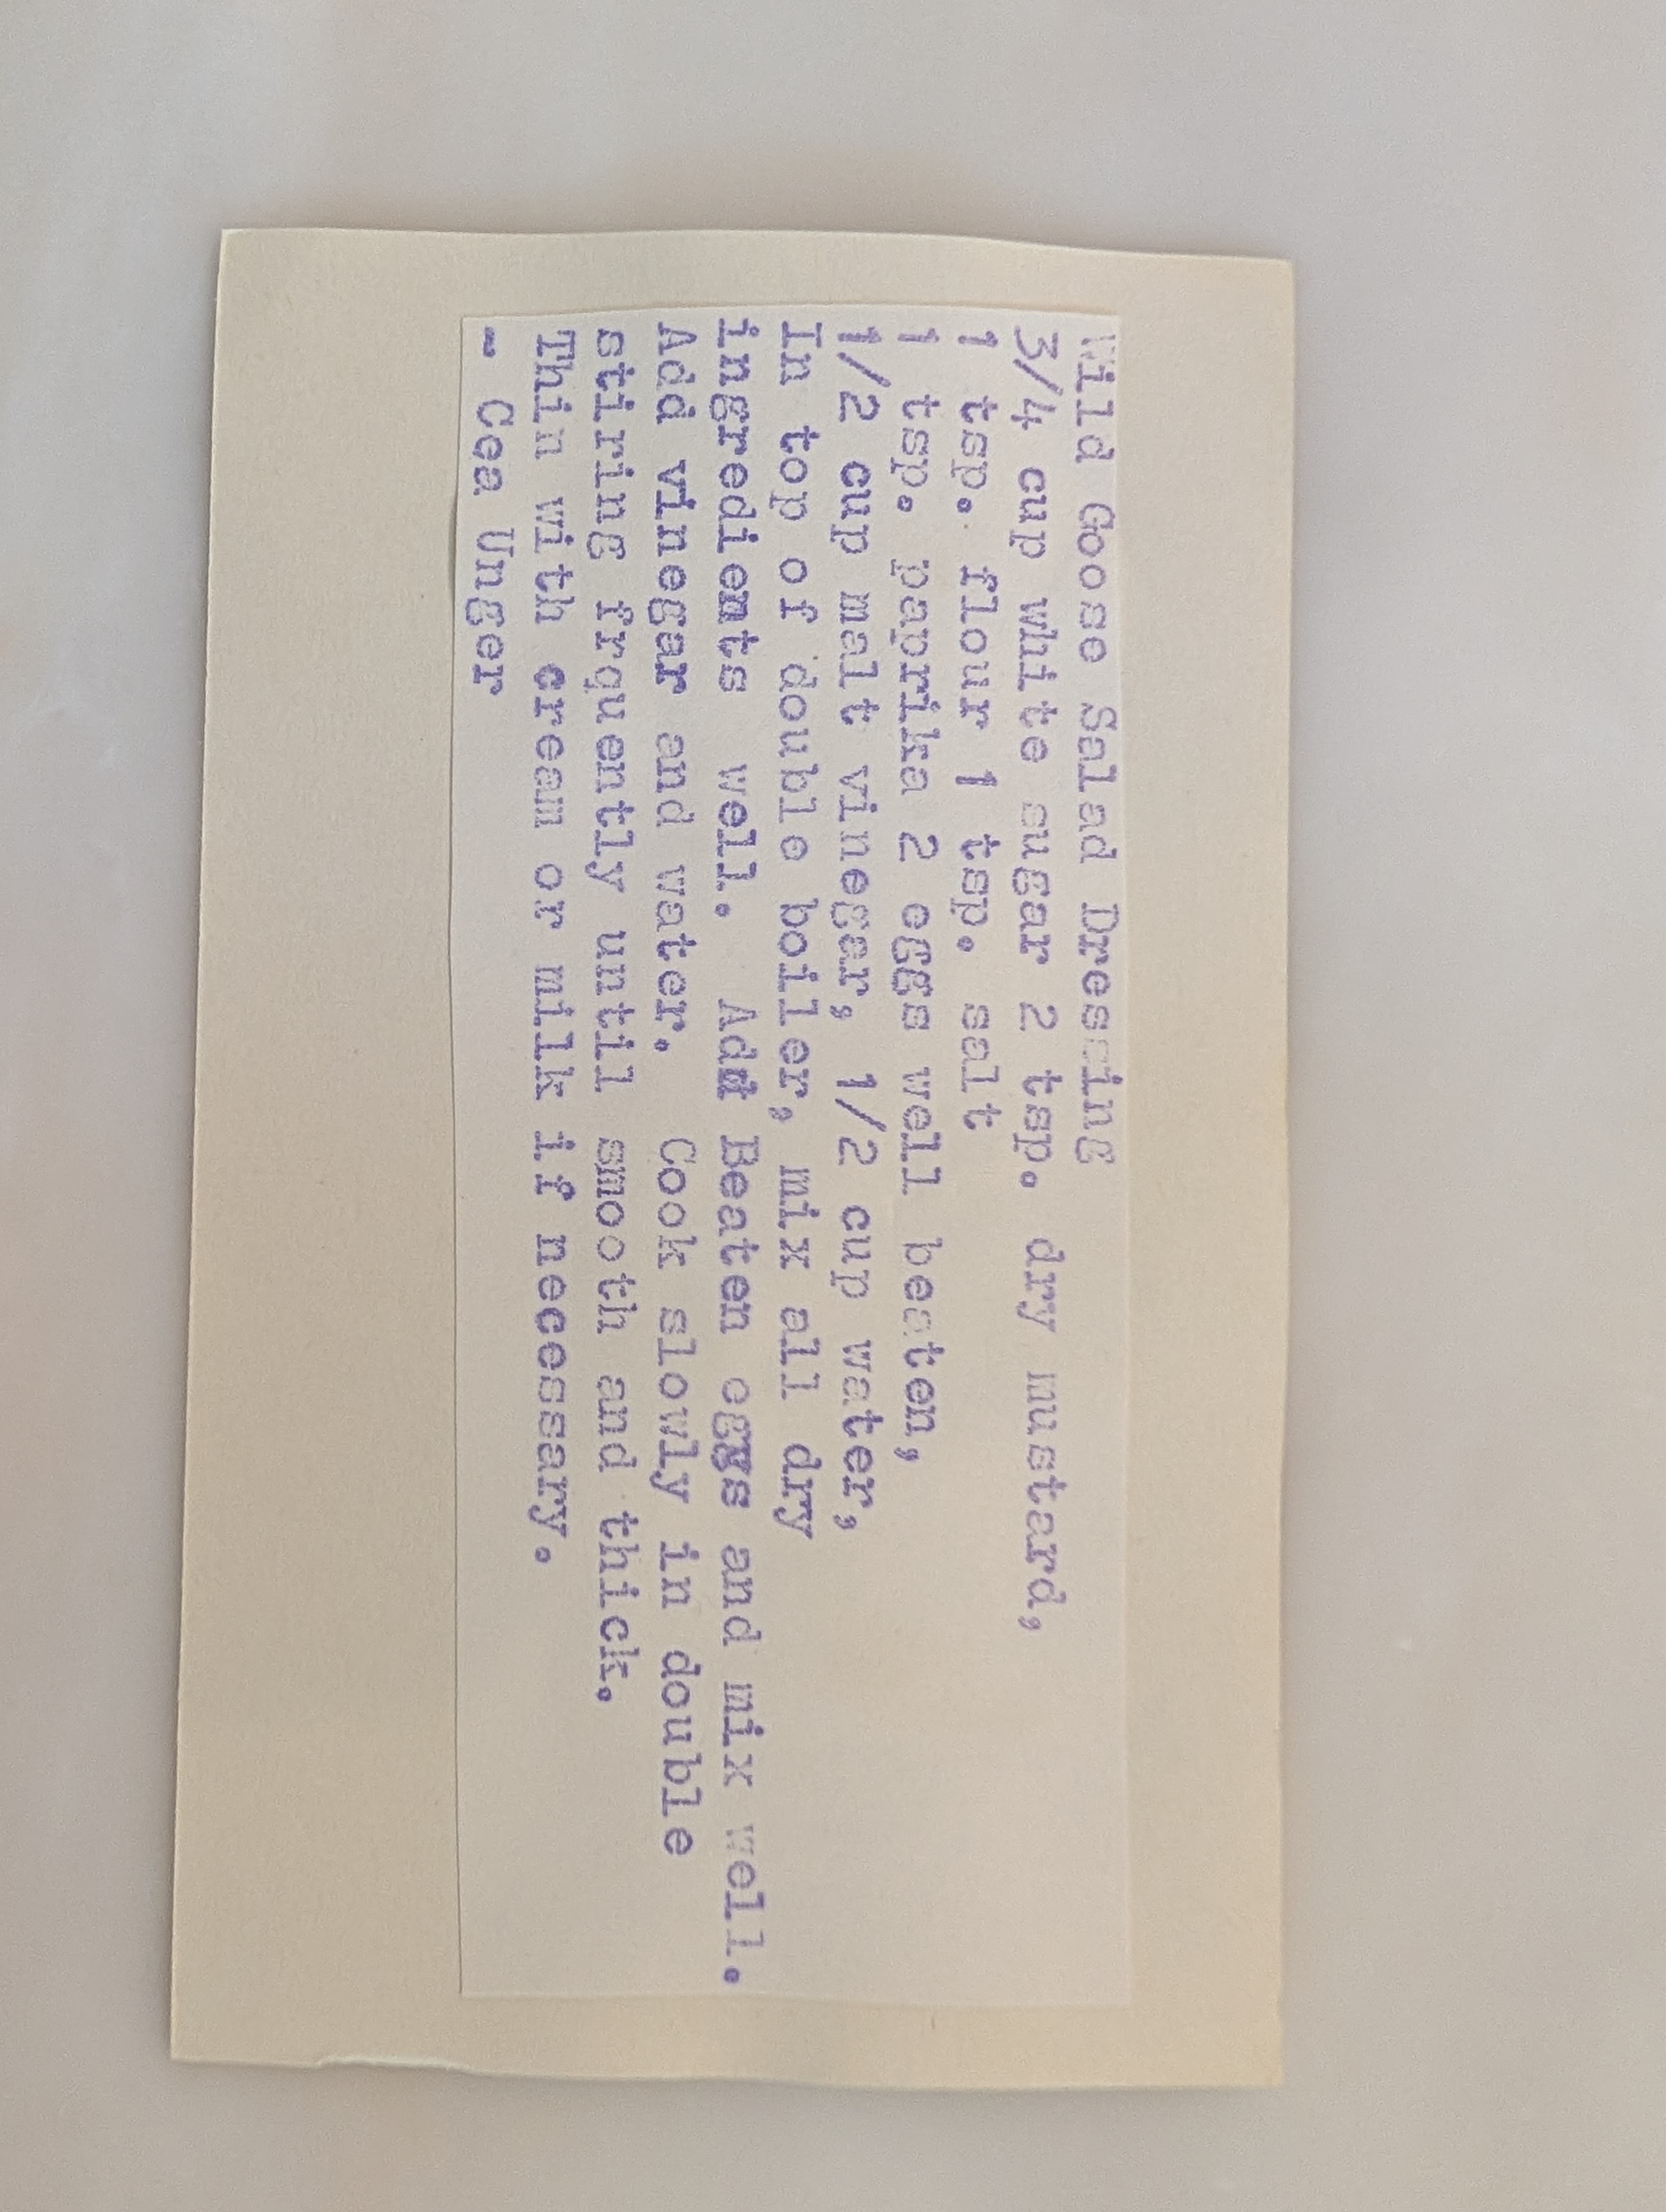 Wild Goose Salad Dressing
3/4 cup white sugar 2 tsp. dry mustard,
1 tsp. flour 1 tsp. salt
1 tsp. paprika 2 eggs well beaten,
1/2 cup malt vinegar, 1/2 cup water,
In top of double boiler, mix all dry
ingredients well. Add Beaten eggs and mix well.
Add vinegar and water. Cook slowly in double
stiring frquently until smooth and thick.
Thin with cream or milk if necessary.
- Cea Unger